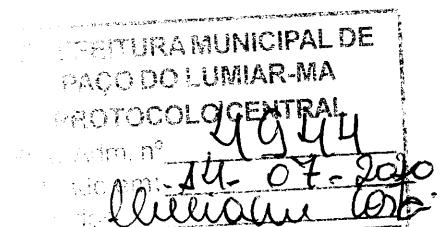 PREFEITURA MUNICIPAL DE
PAÇO DO LUMIAR-MA
PROTOCOLO CENTRAL
Adm. nº 4944
14-07-2020
Costa